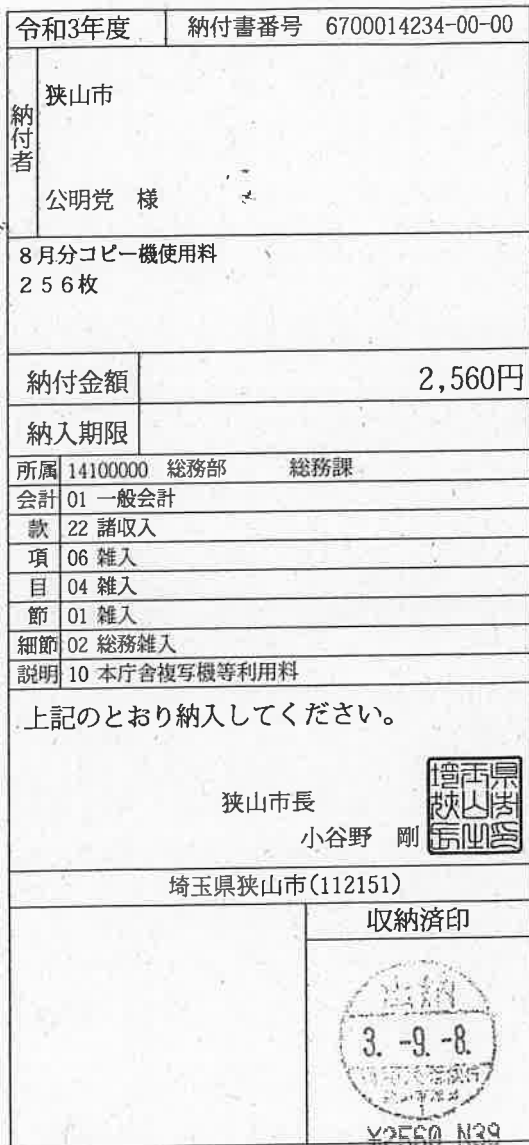 令和3年度 納付書番号 6700014234-00-00
納付者
狭山市
公明党 様
8月分コピー機使用料
256枚
納付金額 2,560円
納入期限
所属 14100000 総務部 総務課
会計 01 一般会計
款 22 諸収入
項 06 雑入
目 04 雑入
節 01 雑入
細節 02 総務雑入
説明 10 本庁舎複写機等利用料
上記のとおり納入してください。
狭山市長
小谷野 剛
埼玉県狭山市(112151)
収納済印
出納
3. -9. -8.
¥2560 N39